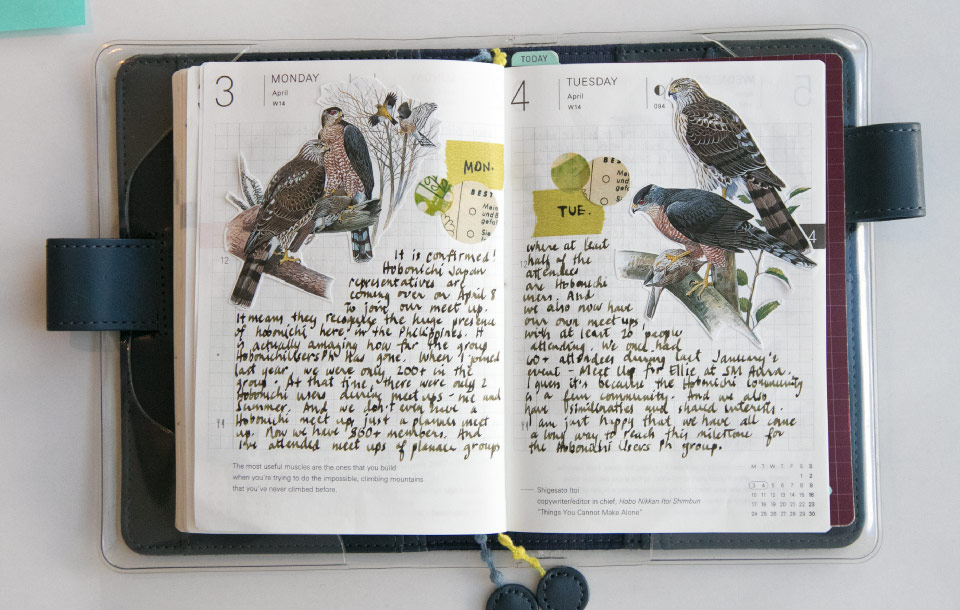 3
MONDAY
April
W14
MON.
BEST
Mein
gefol
Sie
12
It is confirmed!
Hobonichi Japan
representatives are
coming over on April 8
to join our meet up.
It means they recognize the huge presence
of hobonichi here in the Philippines. It
is actually amazing how far the group
HobonichiUsersPh has gone. When I joined
last year, we were only 200+ in the
group. At that time, there were only 2
Hobonichi users during meet ups - me and
Summer. And we don't even have a
Hobonichi meet up, just a planner meet
up. Now we have 860+ members. And
I've attended meet ups of planner groups
The most useful muscles are the ones that you build
when you're trying to do the impossible, climbing mountains
that you've never climbed before.
TODAY
4
TUESDAY
April
W14
094
5
BES
Mei
und
gefo
TUE.
4
12
where at least
half of the
attendees
are Hobonichi
users. And
we also now have
our own meet ups,
with at least 20 people
attending. We once had
60+ attendees during last January's
event - Meet Up for Ellie at SM Aura.
I guess it's because the Hobonichi community
is a fun community. And we also
have similarities and shared interests.
I am just happy that we have all come
a long way to reach this milestone for
the Hobonichi Users Ph group.
Shigesato Itoi
copywriter/editor in chief, Hobo Nikkan Itoi Shimbun
"Things You Cannot Make Alone"
M T W T F S S
1 2
3 4 5 6 7 8 9
10 11 12 13 14 15 16
17 18 19 20 21 22 23
24 25 26 27 28 29 30